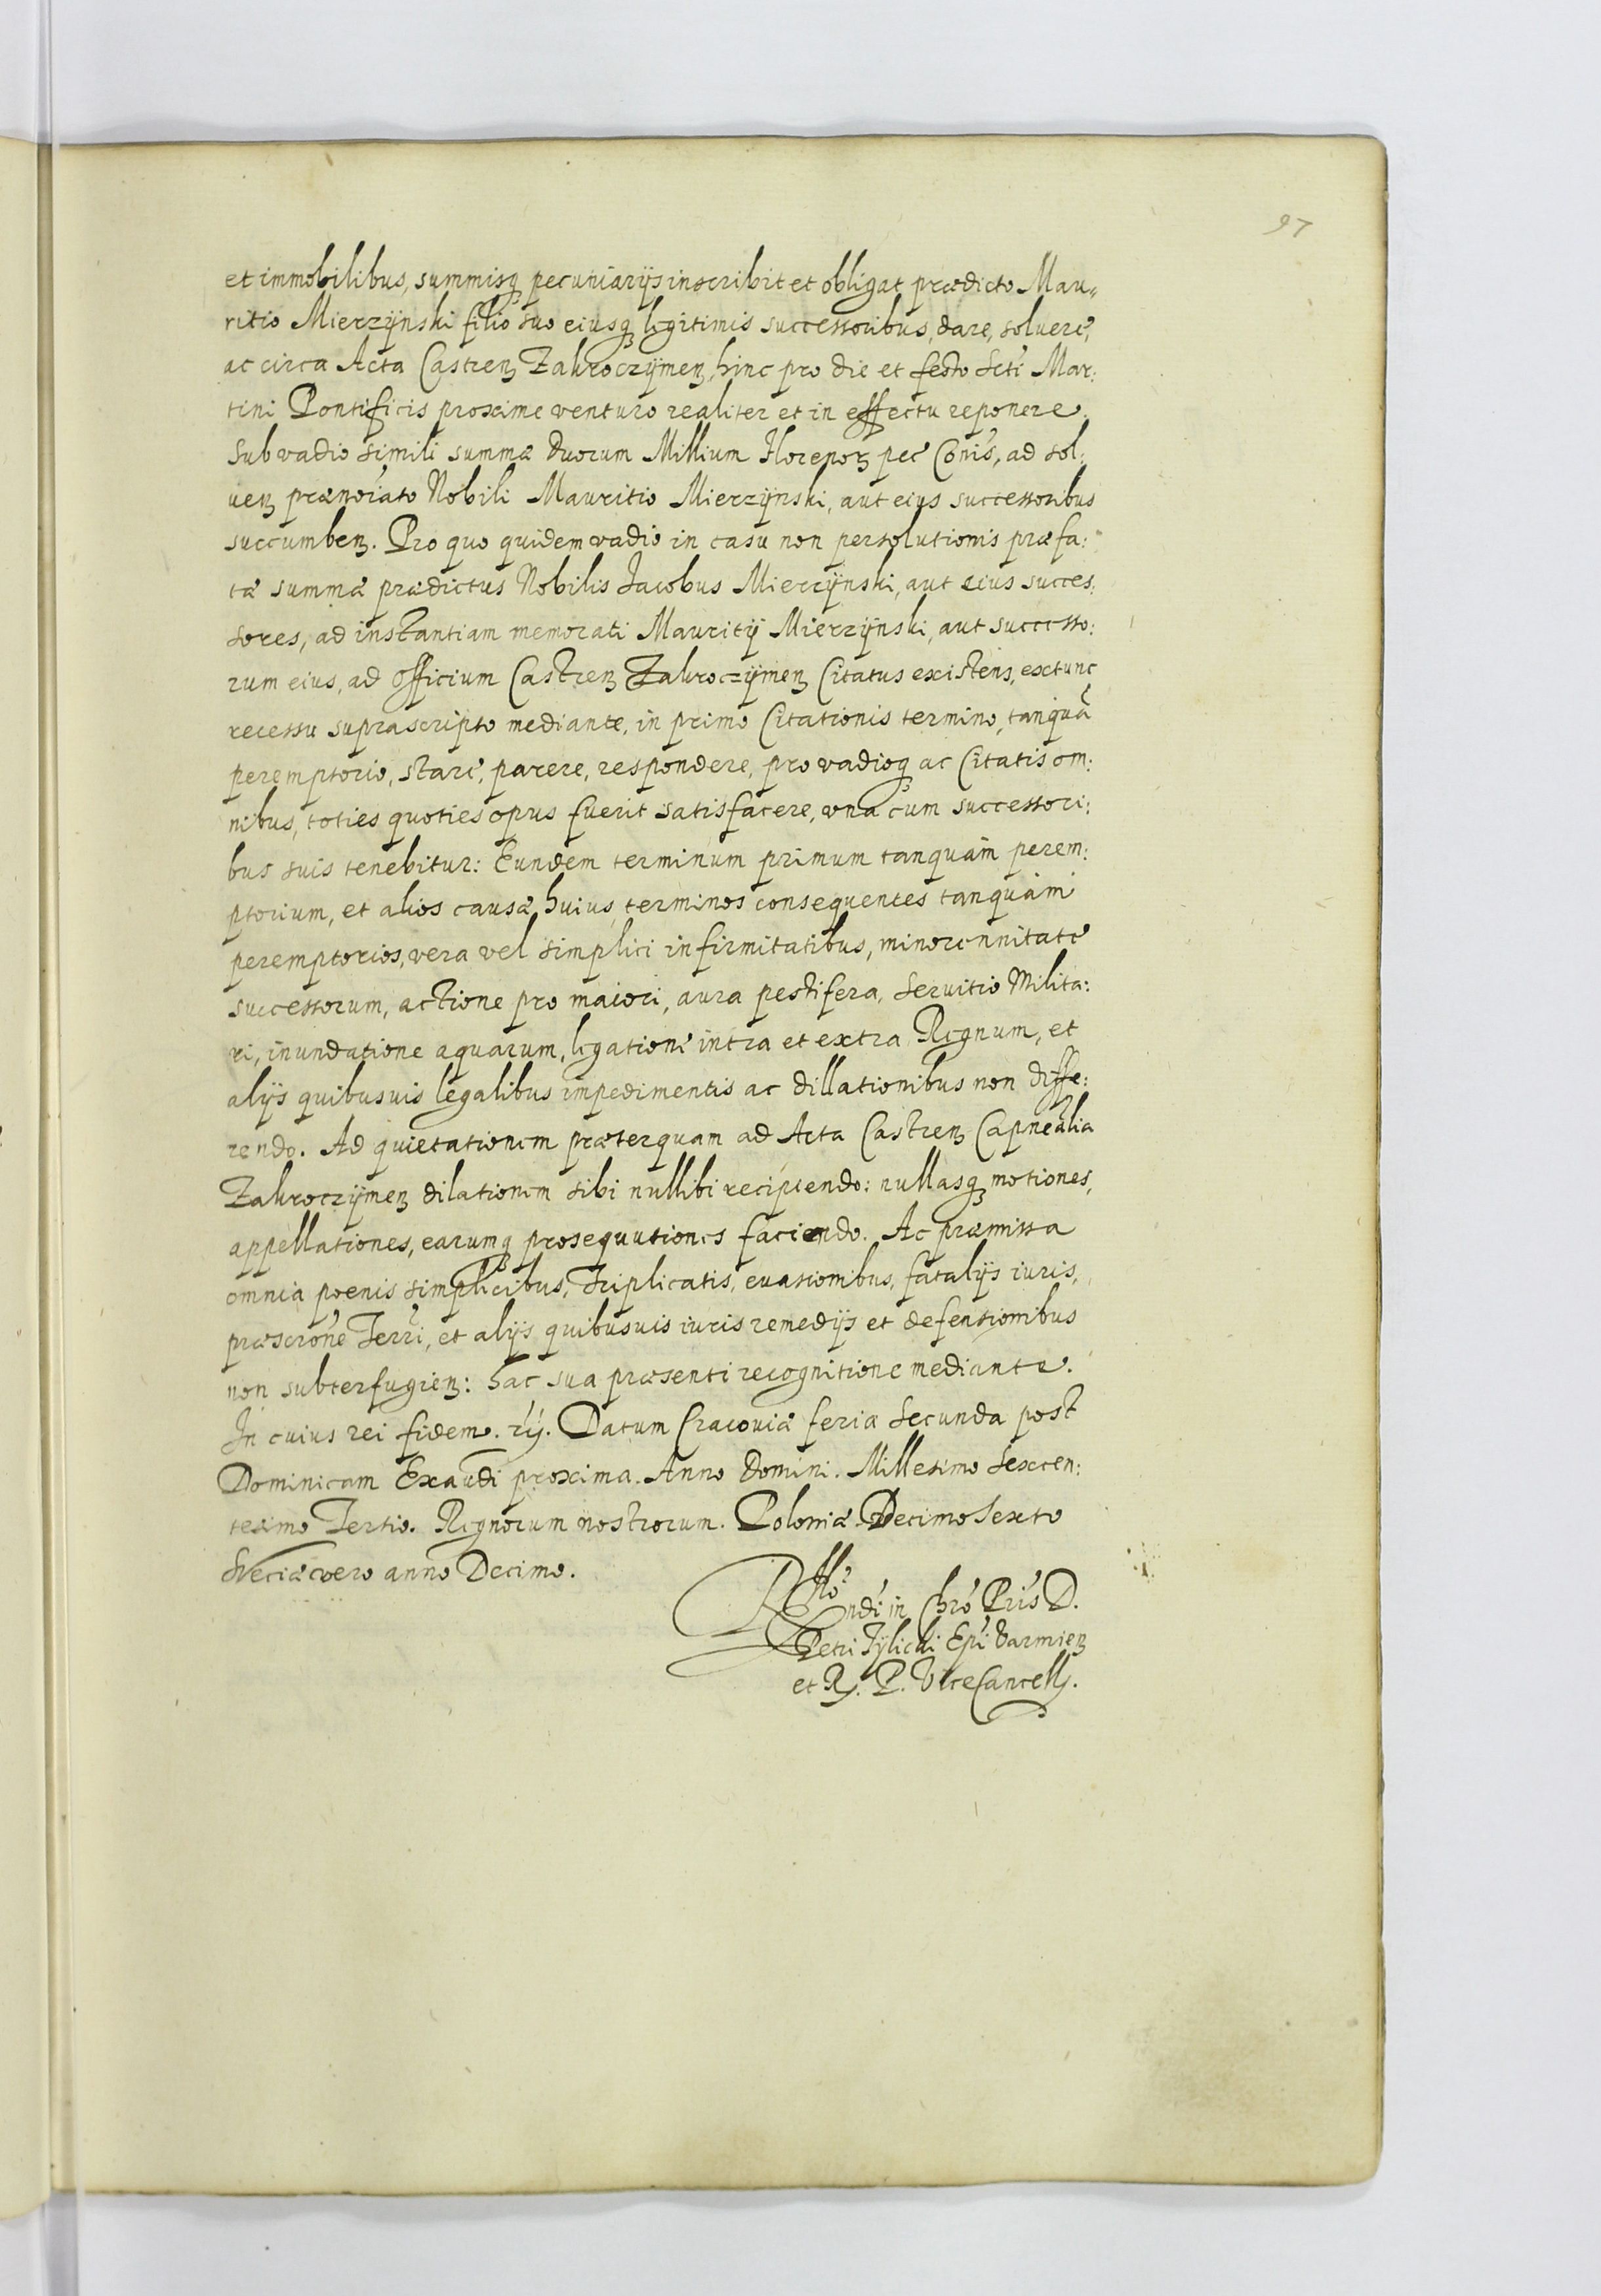 97
et immobilibus, summisq₃ pecuniarÿs inscribit et obligat prædicto Mau„
ritio Mierzÿnski filio suo eiusq₃ legitimis successoribus, dare, soluere,
ac circa Acta Castren₃ Zakroczÿmen₃, hinc pro die et festo Scti Mar:
tini Pontificis proxime venturo realiter et in effectu reponere.
Sub vadio simili summæ duorum Millium Florenor₃ pec Conis, ad sol:
uen₃ prænoiato Nobili Mauritio Mierzÿnski, aut eius successoribus
succumben₃. Pro quo quidem vadio in casu non persolutionis præfa:
tæ summæ prædictus Nobilis Jacobus Mierzÿnski, aut eius succes:
sores, ad instantiam memorati Mauritÿ Mierzÿnski, aut successo:
rum eius, ad officium Castren₃ Zakroczÿmen₃ Citatus existens, extunc
recessu suprascripto mediante, in primo Citationis termino, tanquã
peremptorio, stare, parere, respondere, pro vadioq₃ ac Citatis om:
nibus, toties quoties opus fuerit satisfacere, vna cum successori:
bus suis tenebitur: Eundem terminum primum tanquam perem:
ptorium, et alios causæ huius terminos consequentes tanquam
peremptorios, vera vel simplici infirmitatibus, minorennitate
successorum, actione pro maiori, aura pestifera, Seruitio Milita:
ri, inundatione aquarum, legatione intra et extra Regnum, et
alÿs quibusuis legalibus impedimentis ac dillationibus non diffe:
rendo. Ad quietationem præterquam ad Acta Castren₃ Capnealia
Zakroczÿmen₃ dilationem sibi nullibi recipiendo: nullasq₃ motiones,
appellationes, earumq₃ prosequutiones faciendo. Ac præmissa
omnia poenis simplicibus, Triplicatis, euasionibus, fatalÿs iuris,
præscrone Terri, et alÿs quibusuis iuris remedÿs et defensionibus
non subterfugien₃: hac sua præsenti recognitione mediante.
In cuius rei fidem. rÿ. Datum Cracouiæ feria Secunda post
Dominicam Exaudi proxima. Anno Domini. Millesimo Sexcen:
tesimo Tertio. Regnorum nostrorum. Poloniæ Decimo Sexto
Sveciæ vero anno Decimo.
Rndi in Chro Pris D.
Petri Tÿlicki Epi Varmien₃
et R. P. ViceCancell.